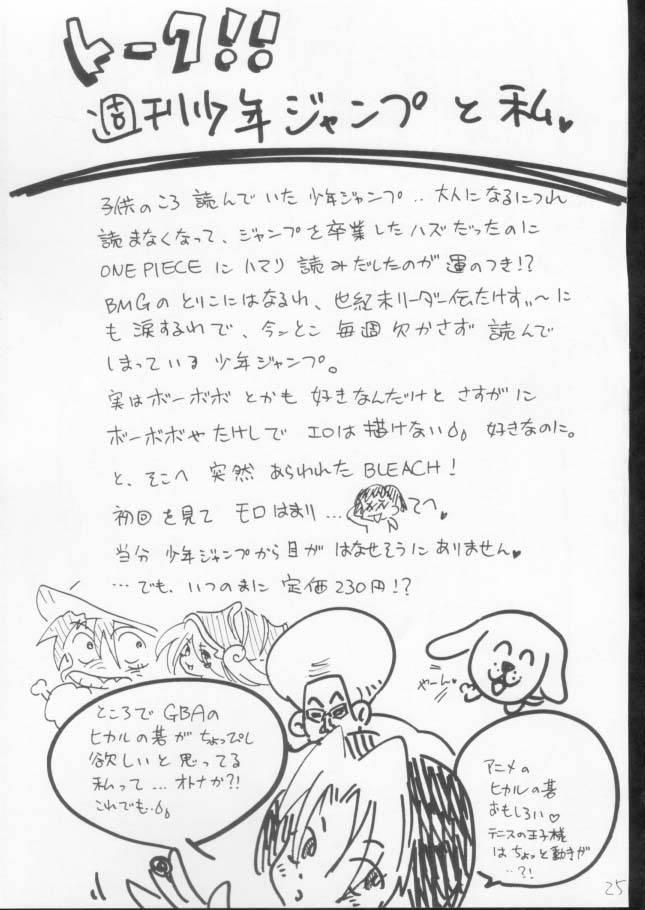 トーク!!
週刊少年ジャンプと私♥
子供のころ 読んでいた 少年ジャンプ‥大人になるにつれ
読まなくなって、ジャンプを卒業したハズだったのに
ONE PIECE に ハマリ 読みだしたのが 運のつき!?
BMGの とりこにはなるわ、世紀末リーダー伝たけすぃ〜に
も 涙するわで、今んとこ 毎週 欠かさず 読んで
しまっている 少年ジャンプ。
実はボーボボ とかも 好きなんだけど さすがに
ボーボボや たけしで エロは描けない 好きなのに。
と、そこへ 突然 あらわれた BLEACH!
初回を見て モロはまり… てへ♥
当分 少年ジャンプから目が はなせそうにありません♥
…でも、いつのまに 定価230円!?
やーん
ところで GBAの
ヒカルの碁が ちょっぴし
欲しいと 思ってる
私って … オトナか?!
これでも…
アニメの
ヒカルの碁
おもしろい♡
テニスの王子様
はちょっと動きが
…?!
25